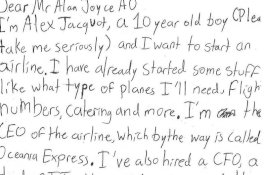 Dear Mr Alan Joyce AO
I'm Alex Jacquot, a 10 year old boy (Plea
take me seriously) and I want to start an
airline. I have already started some stuff
like what type of planes I'll need, fligh
numbers, catering and more. I'm the
CEO of the airline, which by the way is called
Oceania Express. I've also hired a CFO, a